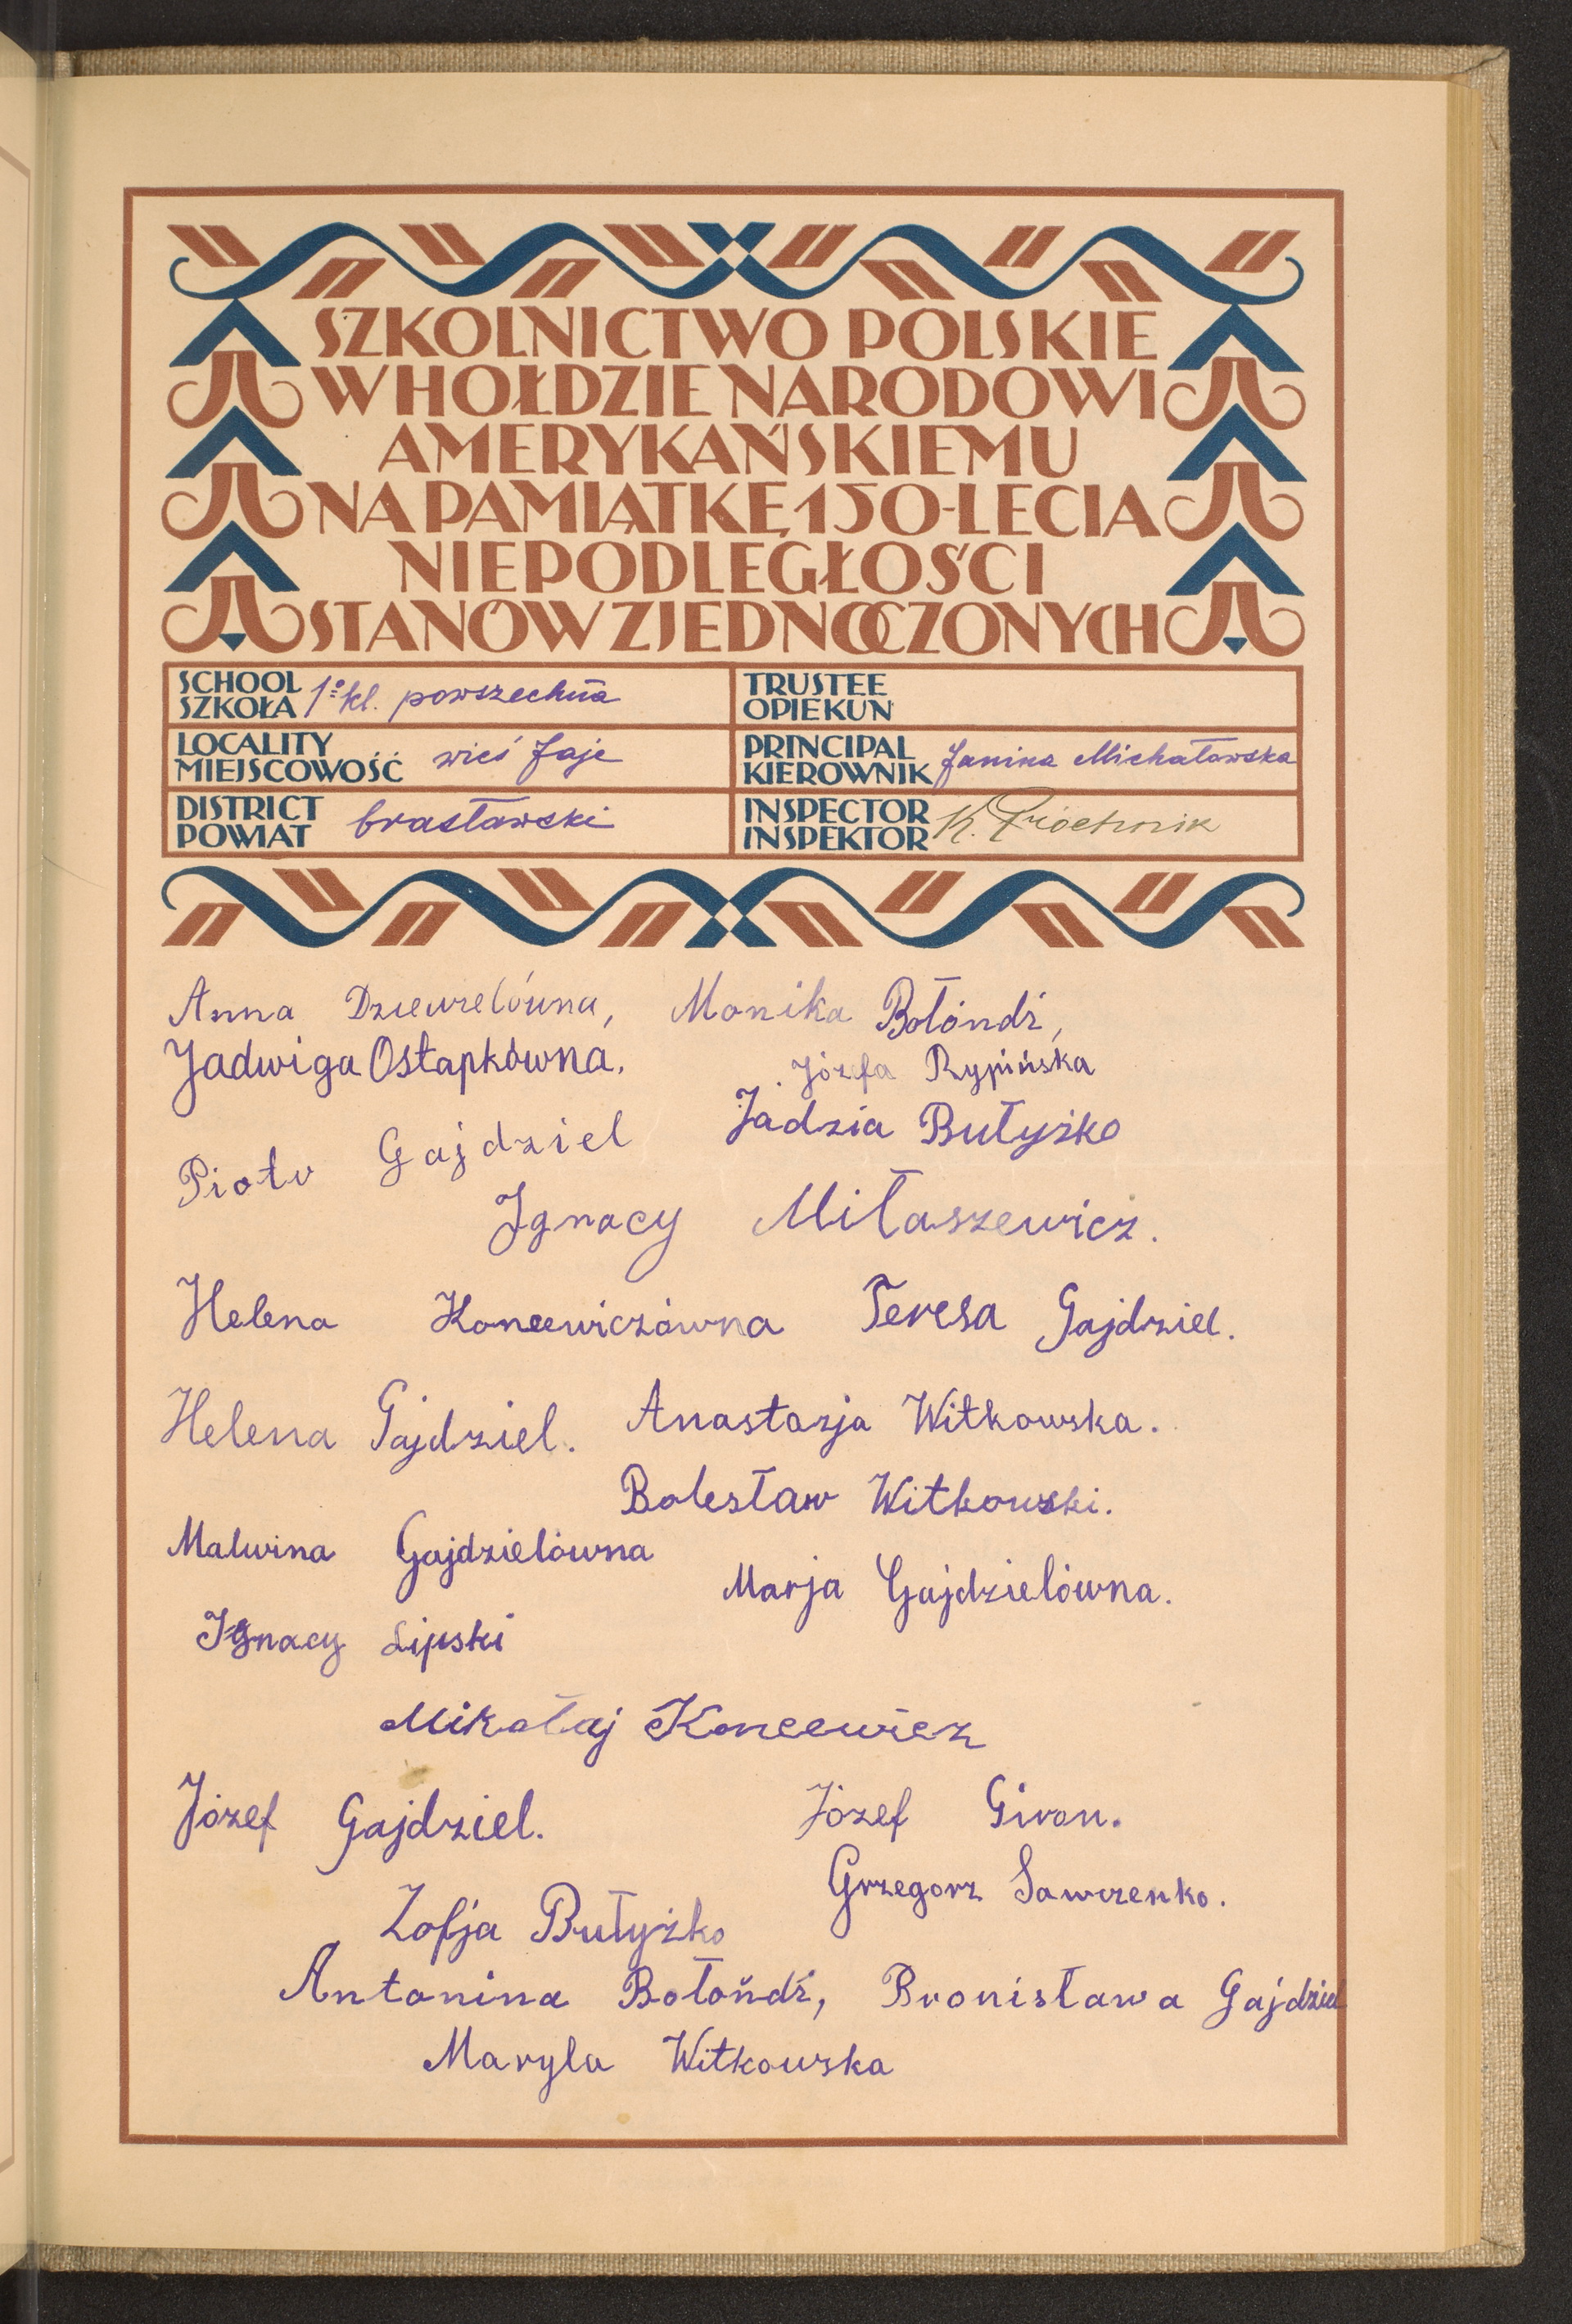 SZKOLNICTWO POLSKIE
W HOŁDZIE NARODOWI
AMERYKAŃSKIEMU
NA PAMIĄTKĘ 150-LECIA
NIEPODLEGŁOŚCI
STANÓW ZJEDNOCZONYCH
SCHOOL
SZKOŁA 1º kl. powszechna
TRUSTEE
OPIEKUN
LOCALITY
MIEJSCOWOŚĆ wieś Jaje
PRINCIPAL
KIEROWNIK Janina Michałowska
DISTRICT
POWIAT brasławski
INSPECTOR
INSPEKTOR K.
Anna Monika Bołóndź,
Jadwiga Ostapkówna. Józefa Rypińska
Piotr Gajdziel Jadzia Butyżko
Ignacy Miłaszewicz.
Helena Koncewiczówna Teresa Gajdziel.
Helena Gajdziel. Anastazja Witkowska.
Bolesław Witkowski.
Malwina Gajdzielówna
Marja Gajdzielówna.
Ignacy Lipski
Mikołaj Koncewicz
Józef Gajdziel. Józef Giron.
Grzegorz Sawczenko.
Zofja Butyżko
Antonina Bołońdź, Bronisława Gajdziel
Maryla Witkowska